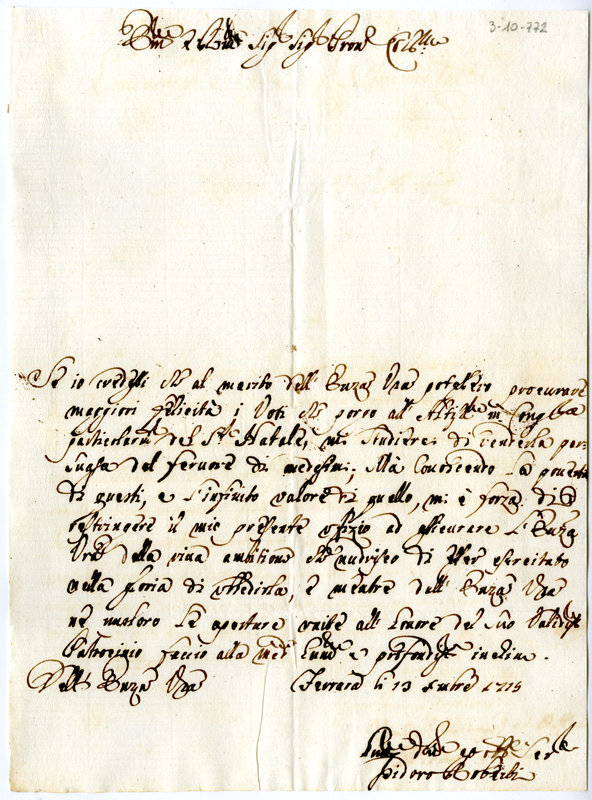 3-10-772
Em.mo e R.mo Sig.r Sig.r Pron.e Col.mo
Se io credessi che al merito dell' Emza Vra potessero procurare
maggiori felicità i Voti che porgo all' Altiss.mo in
del S.to Natale, mi studierei di renderla per:
suasa del fervore di medesimi; Mà Conoscendo la povertà
di questi, e l'infinito valore di quello, mi è forza di
restringere il mio presente offizio ad assicurare l'Emza
Vra della viva ambitione che nudrisco di esser esercitato
nella gloria di ubbidirla, e mentre dall' Emza Vra
ne imploro le aperture unite all' honore del Suo Validiss.mo
Patrocinio faccio alla med.a hum.e e profondiss.o inchino.
Dell' Emza Vra
Ferrara li 13 Xmbre 1715
Hum.mo Dev.mo ed Obb.mo Ser.re
Isidoro